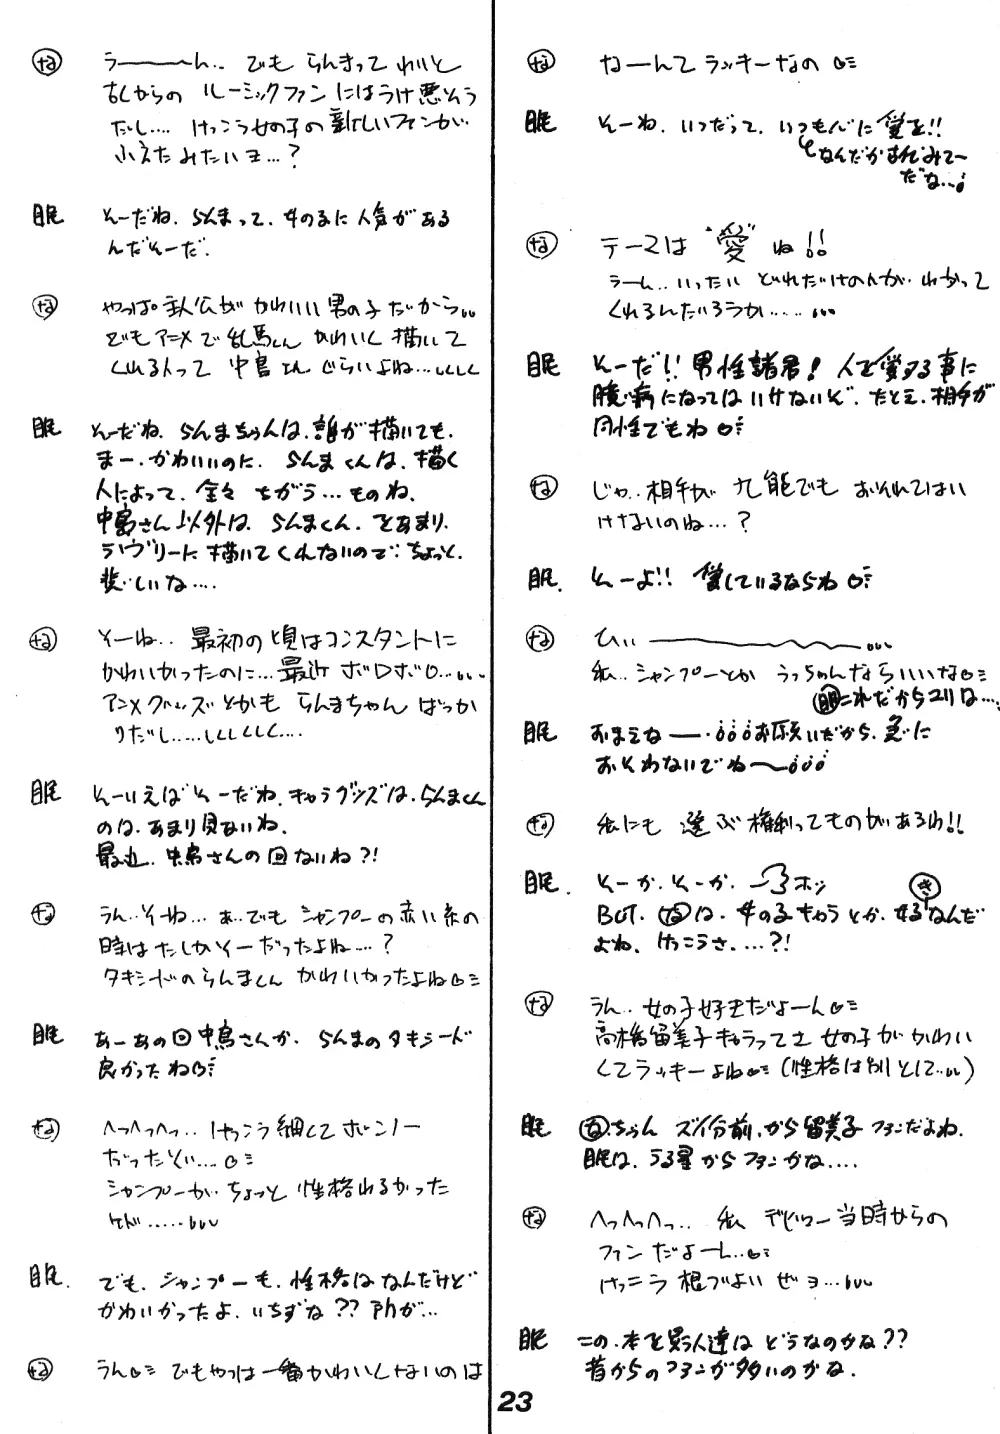 な うーーーん.. でも らんまって わりと
古くからの ルーミックファン にはうけ悪そう
だし.... けっこう女の子の新しいファンが
ふえたみたいョ...?
眠 そーだね. らんまって. 女の子に人気がある
んだそーだ.
な やっぱ主人公が かわいい 男の子だから...
でもアニメで乱馬くん かわいく 描いて
くれる人って 中島さんぐらいよね...しくしく
眠 そーだね. らんまちゃんは. 誰が描いても.
まー. かわいいのに. らんまくんは. 描く
人によって. 全々 ちがう...ものね.
中島さん以外は. らんまくん. とあまり.
ラヴリーに描いてくれないので. ちょっと.
悲しいな....
な そーね.. 最初の頃はコンスタントに
かわいかったのに...最近ボロボロ.....
アニメグッズとかも らんまちゃん ばっか
りだし.....しくしくしく....
眠 そーいえばそーだね. キャラグッズは. らんまくん
のは. あまり見ないね.
最近. 中島さんの回ないね?!
な うん..そーね... あ..でも シャンプーの赤い糸の
時は たしかそーだったよね....?
タキシードのらんまくん かわいかったよね♡
眠 あーあの回中島さんか. らんまのタキシード
良かったね♡
な へっへっへっ.. けっこう細くてボン!ー
だったぞい....♡
シャンプーが. ちょっと 性格わるかった
ケド.......
眠. でも. シャンプーも. 性格はなんだけど
かわいかったよ. いちずな?? 所が...
な うん♡ でもやっぱ一番かわいくしないのは
な なーんてラッキーなの♡
眠 そーね. いつだって. いつも心に愛を!!
なんだか まんがみてー
だな...
な テーマは “愛” ね!!
うーん... いったい どれだけの人が. わかって
くれるんだろうか........
眠 そーだ!! 男性諸君! 人を愛する事に
臆病になってはいけないぞ. たとえ. 相手が
同性でもね♡
な じゃ.. 相手が 九能でも おそれてはい
けないのね...?
眠. そーよ!! 愛しているならね♡
な ひぃーーーーー...
私.. シャンプーとか うっちゃんなら いいな♡
(眠これだからユリは....
眠 おまえなーー... お願いだから. 急に
おそわないでね〜
な 私にも 選ぶ権利ってものがあるわ!!
眠. そーか. そーか. ホッ
BUT. なは. 女の子キャラとか. 好きなんだ
よね. けっこうさ....?!
な うん. 女の子好きだよーん♡
高橋留美子キャラってさ 女の子がかわい
くてラッキーよね♡(性格は別として...)
眠 なちゃん ズイ分前.から 留美子 ファンだよね.
眠は. うる星からファンかな....
な へっへっへっ.. 私 デビュー当時からの
ファンだよーん..♡
けっこう 根づよい ぜョ...
眠 この.本を買う人達は どうなのかな??
昔からのファンが多いのかな.
23